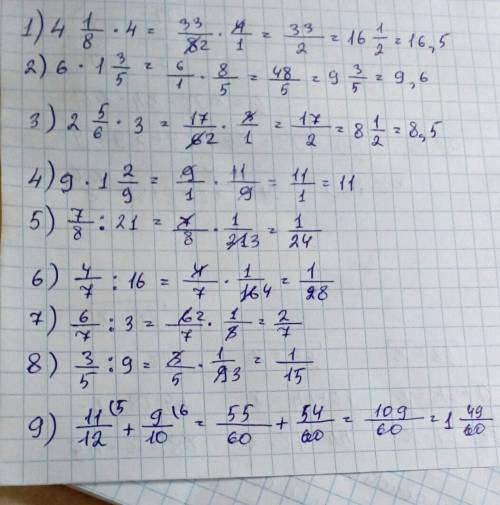 1) 4 1/8 · 4 = 33/82 · 4/1 = 33/2 = 16 1/2 = 16,5
2) 6 · 1 3/5 = 6/1 · 8/5 = 48/5 = 9 3/5 = 9,6
3) 2 5/6 · 3 = 17/62 · 3/1 = 17/2 = 8 1/2 = 8,5
4) 9 · 1 2/9 = 9/1 · 11/9 = 11/1 = 11
5) 7/8 : 21 = 7/8 · 1/213 = 1/24
6) 4/7 : 16 = 4/7 · 1/164 = 1/28
7) 6/7 : 3 = 62/7 · 1/3 = 2/7
8) 3/5 : 9 = 3/5 · 1/93 = 1/15
9) 11/12 (5 + 9/10 (6 = 55/60 + 54/60 = 109/60 = 1 49/60